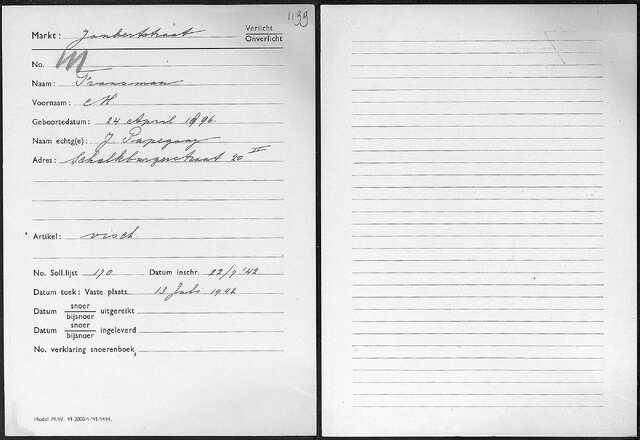 1139
Markt: Joubertstraat Verlicht
Onverlicht
No. M
Naam: Fransman
Voornaam: M
Geboortedatum: 24 April 1896
Naam echtg(e): J Papegaay
Adres: Schalkburgerstraat 20 II
Artikel: visch
No. Soll.lijst 170 Datum inschr. 22/9 '42
Datum toek: Vaste plaats 13 Juli 1942
Datum snoer/bijsnoer uitgereikt
Datum snoer/bijsnoer ingeleverd
No. verklaring snoerenboek
Model M.W.